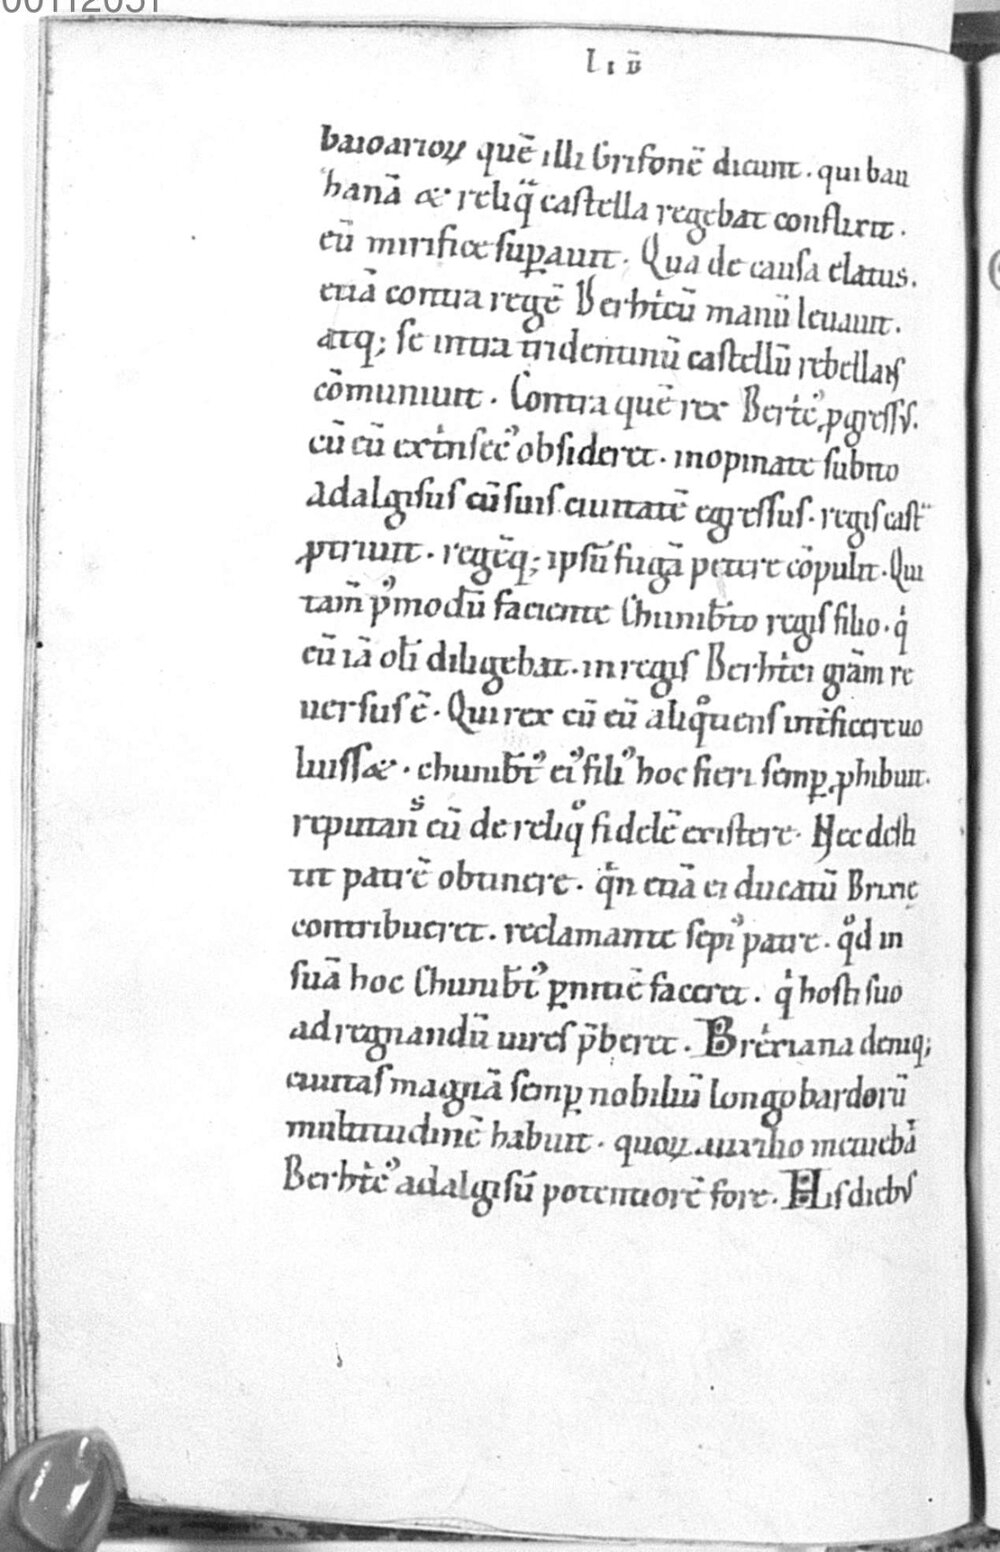 00112051
Lıb̄
baioarioꝝ quē illi Grisonē dicunt. qui bau
hanā & reliq̄ castella regebat conflixit.
eū mirifice suꝑauit. Qua de causa elatus.
etiā contra regē Berhtcū manū leuauit.
atq; se intra tridentinū castellū rebellās
cōmuniuit. Contra quē rex Bertc᾽ ꝓgressus.
cū eū extinsec᾽ obsideret. inopinate subito
Adalgisus cū suis ciuitatē egressus. regis cast̄
ꝓtriuit. regēq; ipsū fugā petere cōpulit. Qui
tam̄ p᾽modū faciente Chunib̄to regis filio. qi
eū iā oli diligebat. in regis Berhtci grām re
uersus ē. Qui rex cū eū aliqͦtiens int̄ficere uo
luiss&. chunib̄t᾽ ei᾽ fili᾽ hoc fieri semꝑ ꝓhibuit.
reputans eū de reliqͦ fidelē existere. Nec desti
tit patrē obtinere. qin etiā ei ducatū Brixie
contribueret. reclamante sepi᾽ patre. qͦd in
suā hoc Chunib̄t᾽ ꝑnitiē faceret. qi hosti suo
ad regnandū uires p̄beret. Brexiana deniq;
ciuitas magnā semꝑ nobiliū longobardorū
multitudinē habuit. quoꝝ auxilio metuebat
Berhtc᾽ adalgisū potentiorē fore. His diebus